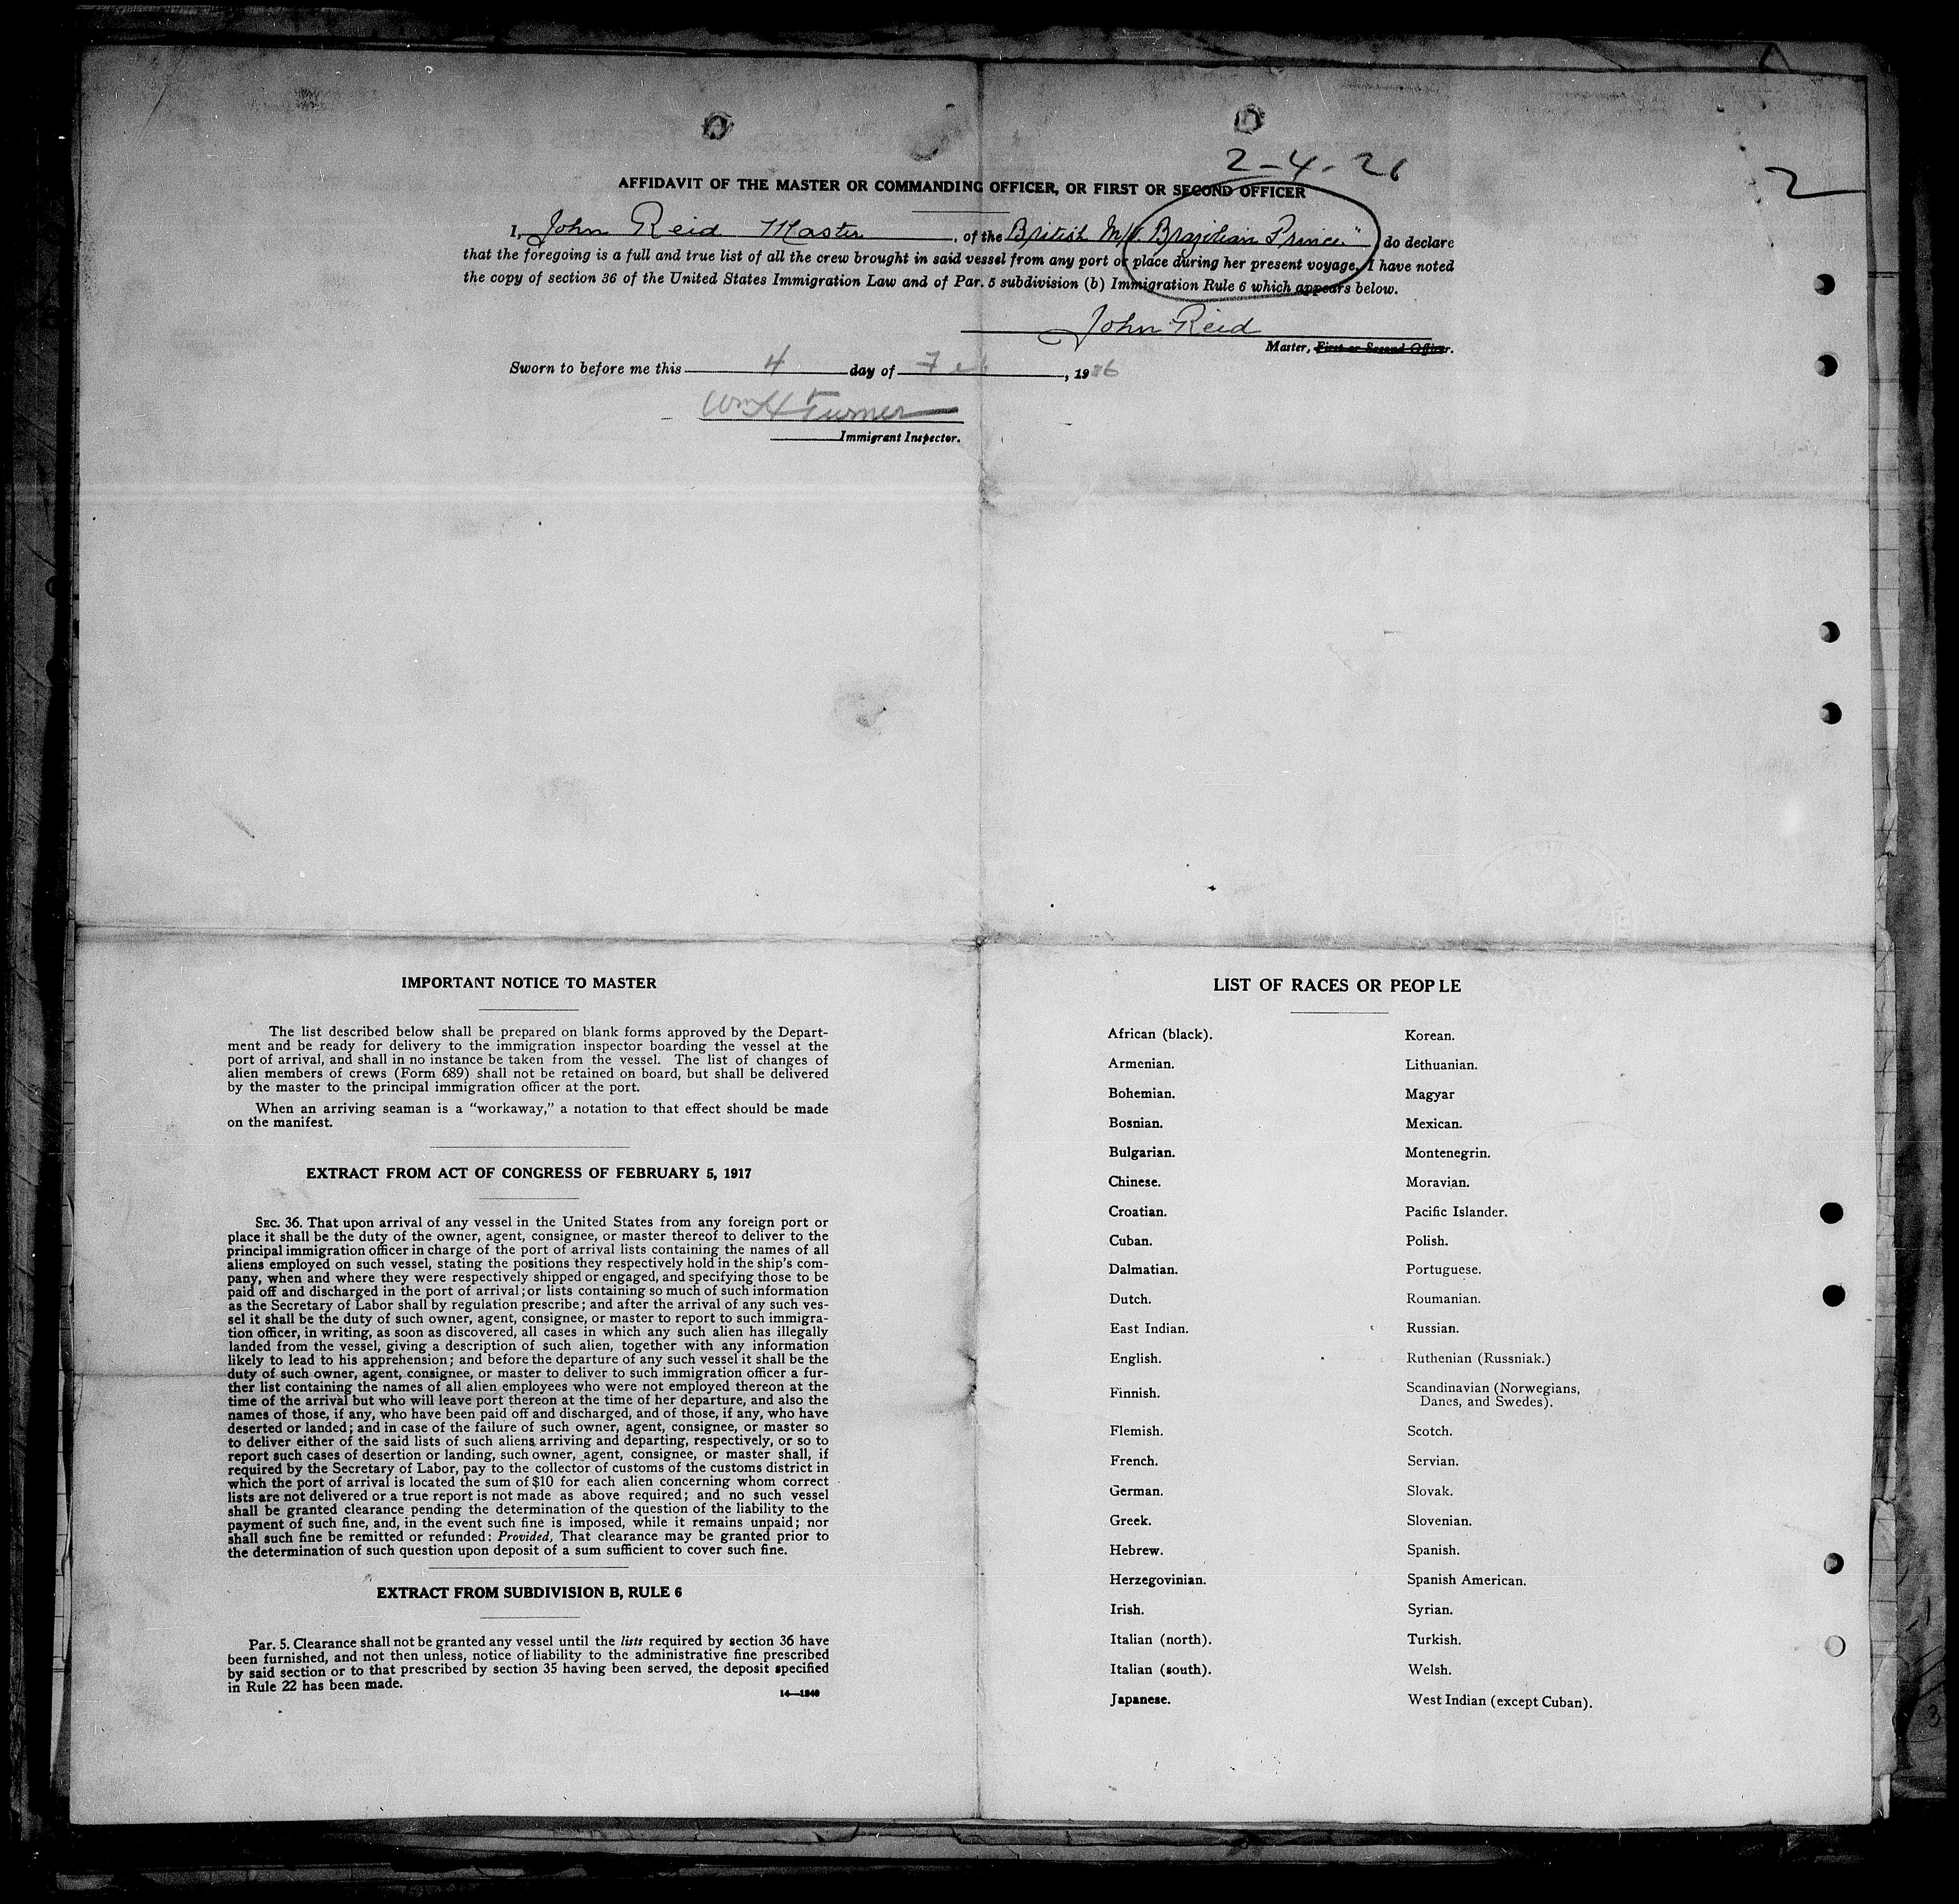 2-4-26
2
AFFIDAVIT OF THE MASTER OR COMMANDING OFFICER, OR FIRST OR SECOND OFFICER
I, John Reid Master, of the British M/V. Brazilian Prince", do declare
that the foregoing is a full and true list of all the crew brought in said vessel from any port or place during her present voyage. I have noted
the copy of section 36 of the United States Immigration Law and of Par. 5 subdivision (b) Immigration Rule 6 which appears below.
John Reid
Master, First or Second Officer.
Sworn to before me this 4 day of Feb, 1926
Wm H Turner
Immigrant Inspector.
IMPORTANT NOTICE TO MASTER
The list described below shall be prepared on blank forms approved by the Depart-
ment and be ready for delivery to the immigration inspector boarding the vessel at the
port of arrival, and shall in no instance be taken from the vessel. The list of changes of
alien members of crews (Form 689) shall not be retained on board, but shall be delivered
by the master to the principal immigration officer at the port.
When an arriving seaman is a "workaway," a notation to that effect should be made
on the manifest.
EXTRACT FROM ACT OF CONGRESS OF FEBRUARY 5, 1917
SEC. 36. That upon arrival of any vessel in the United States from any foreign port or
place it shall be the duty of the owner, agent, consignee, or master thereof to deliver to the
principal immigration officer in charge of the port of arrival lists containing the names of all
aliens employed on such vessel, stating the positions they respectively hold in the ship's com-
pany, when and where they were respectively shipped or engaged, and specifying those to be
paid off and discharged in the port of arrival; or lists containing so much of such information
as the Secretary of Labor shall by regulation prescribe; and after the arrival of any such ves-
sel it shall be the duty of such owner, agent, consignee, or master to report to such immigra-
tion officer, in writing, as soon as discovered, all cases in which any such alien has illegally
landed from the vessel, giving a description of such alien, together with any information
likely to lead to his apprehension; and before the departure of any such vessel it shall be the
duty of such owner, agent, consignee, or master to deliver to such immigration officer a fur-
ther list containing the names of all alien employees who were not employed thereon at the
time of the arrival but who will leave port thereon at the time of her departure, and also the
names of those, if any, who have been paid off and discharged, and of those, if any, who have
deserted or landed; and in case of the failure of such owner, agent, consignee, or master so
to deliver either of the said lists of such aliens arriving and departing, respectively, or so to
report such cases of desertion or landing, such owner, agent, consignee, or master shall, if
required by the Secretary of Labor, pay to the collector of customs of the customs district in
which the port of arrival is located the sum of $10 for each alien concerning whom correct
lists are not delivered or a true report is not made as above required; and no such vessel
shall be granted clearance pending the determination of the question of the liability to the
payment of such fine, and, in the event such fine is imposed, while it remains unpaid; nor
shall such fine be remitted or refunded: Provided, That clearance may be granted prior to
the determination of such question upon deposit of a sum sufficient to cover such fine.
EXTRACT FROM SUBDIVISION B, RULE 6
Par. 5. Clearance shall not be granted any vessel until the lists required by section 36 have
been furnished, and not then unless, notice of liability to the administrative fine prescribed
by said section or to that prescribed by section 35 having been served, the deposit specified
in Rule 22 has been made.
14—1240
LIST OF RACES OR PEOPLE
African (black).
Armenian.
Bohemian.
Bosnian.
Bulgarian.
Chinese.
Croatian.
Cuban.
Dalmatian.
Dutch.
East Indian.
English.
Finnish.
Flemish.
French.
German.
Greek.
Hebrew.
Herzegovinian.
Irish.
Italian (north).
Italian (south).
Japanese.
Korean.
Lithuanian.
Magyar
Mexican.
Montenegrin.
Moravian.
Pacific Islander.
Polish.
Portuguese.
Roumanian.
Russian.
Ruthenian (Russniak.)
Scandinavian (Norwegians,
Danes, and Swedes).
Scotch.
Servian.
Slovak.
Slovenian.
Spanish.
Spanish American.
Syrian.
Turkish.
Welsh.
West Indian (except Cuban).
3